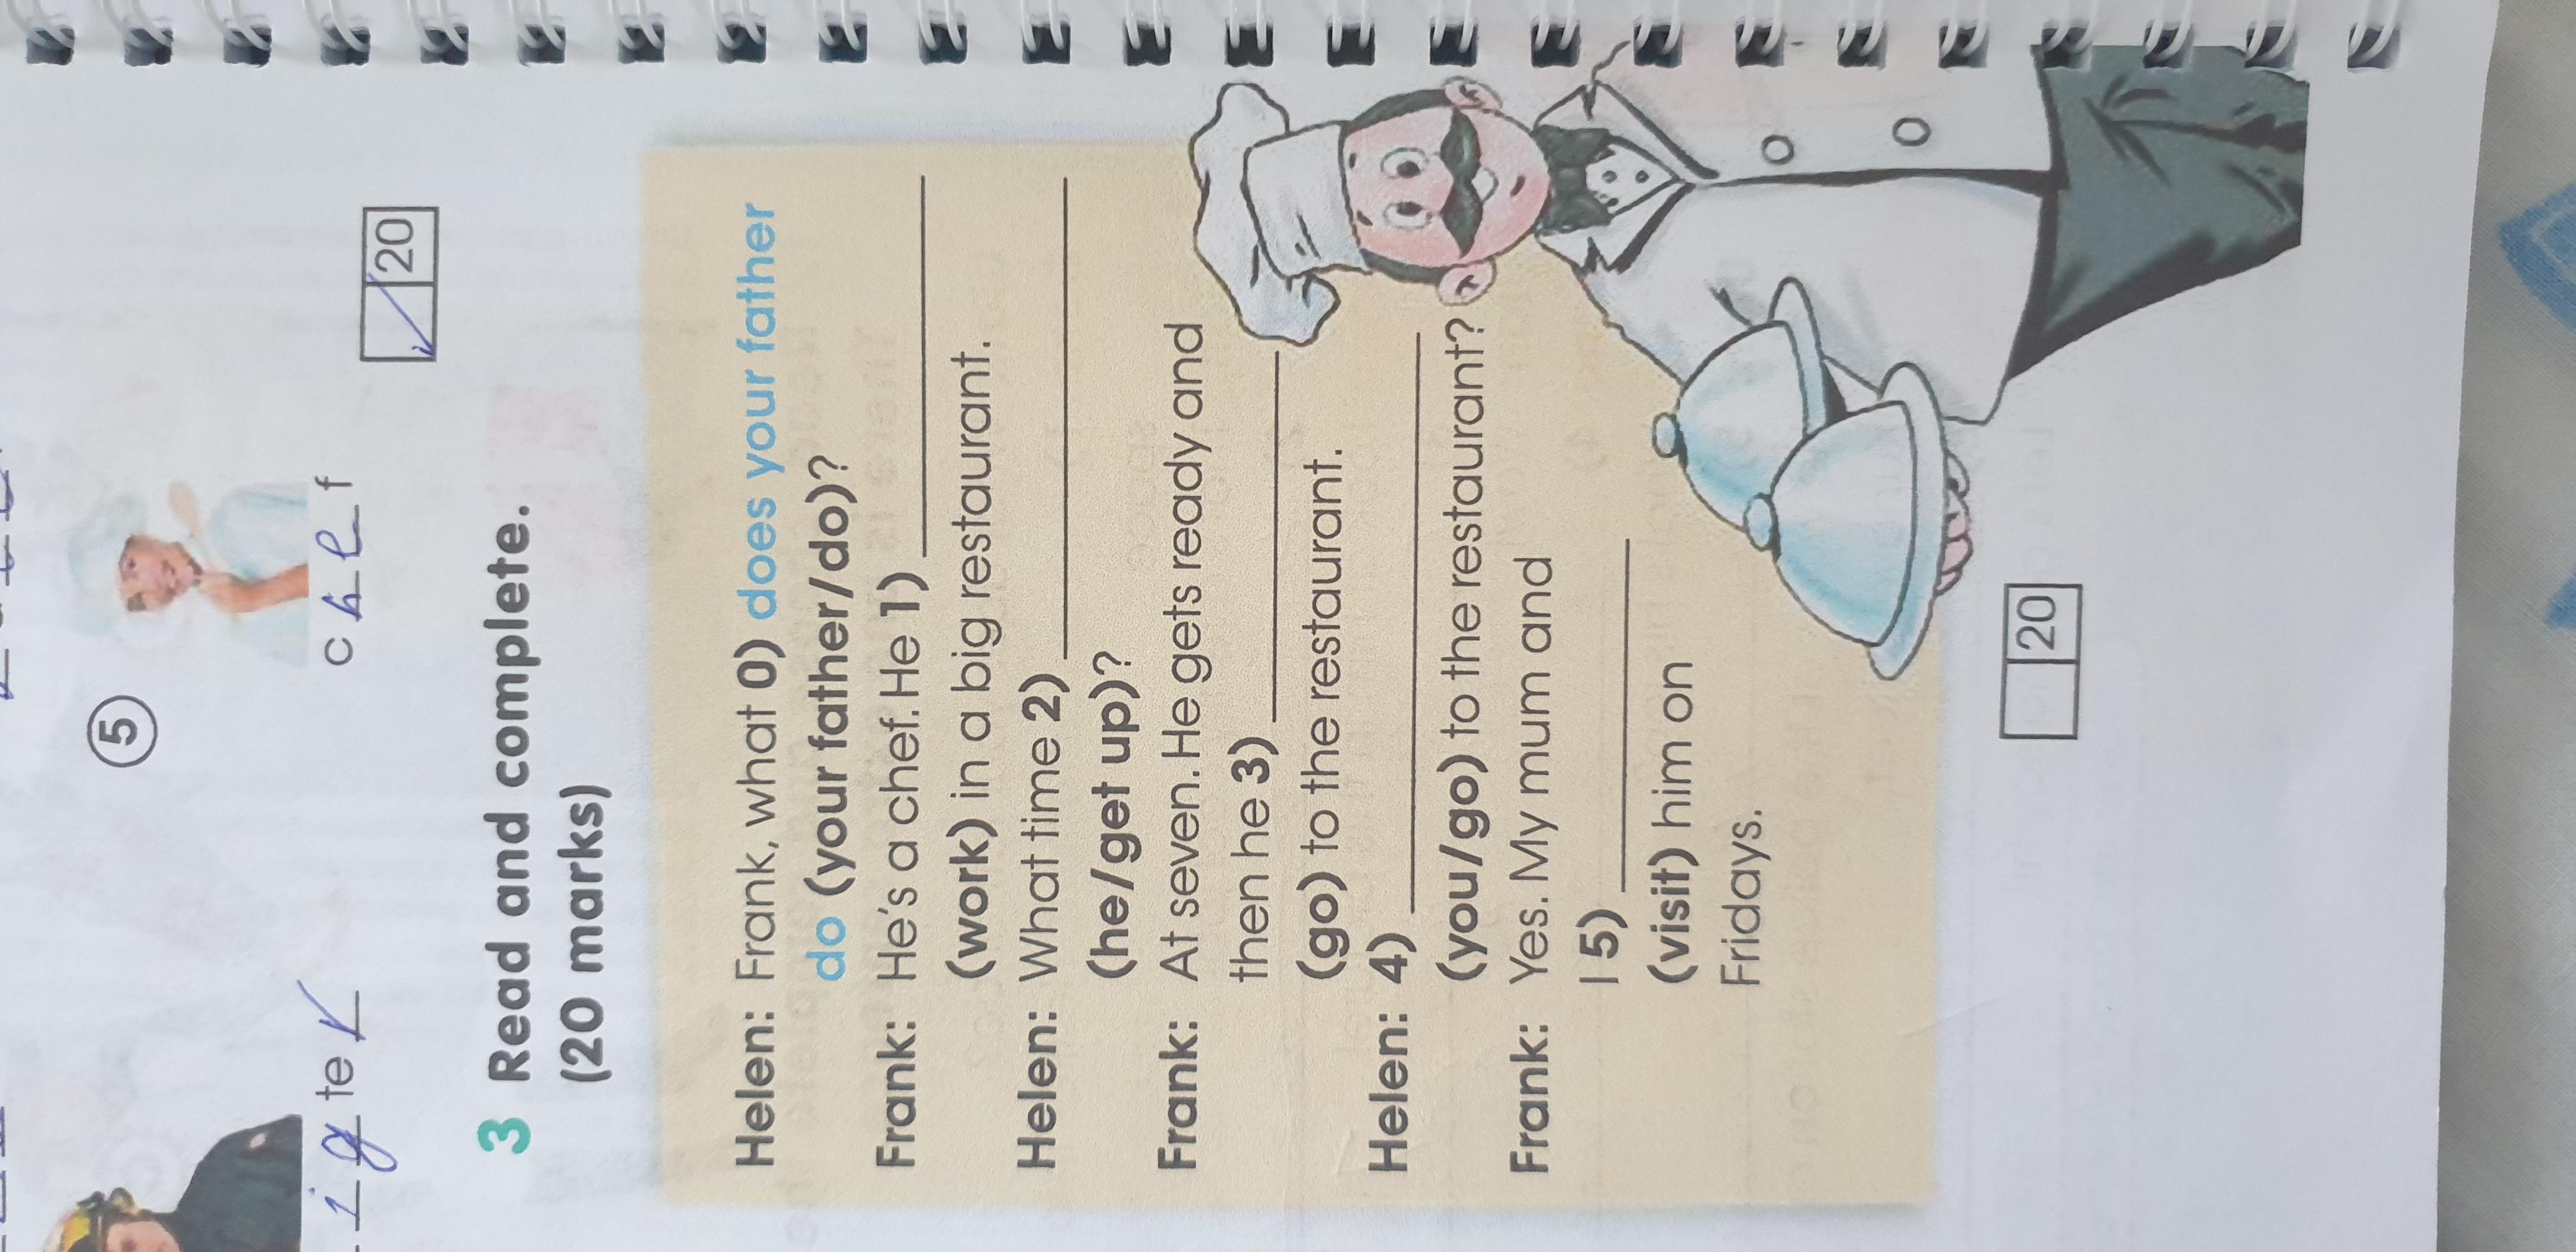 5
i g te r
c h e f
20
3 Read and complete.
(20 marks)
Helen: Frank, what 0) does your father
do (your father/do)?
Frank: He's a chef. He 1)
(work) in a big restaurant.
Helen: What time 2)
(he/get up)?
Frank: At seven. He gets ready and
then he 3)
(go) to the restaurant.
Helen: 4)
(you/go) to the restaurant?
Frank: Yes. My mum and
I 5)
(visit) him on
Fridays.
20